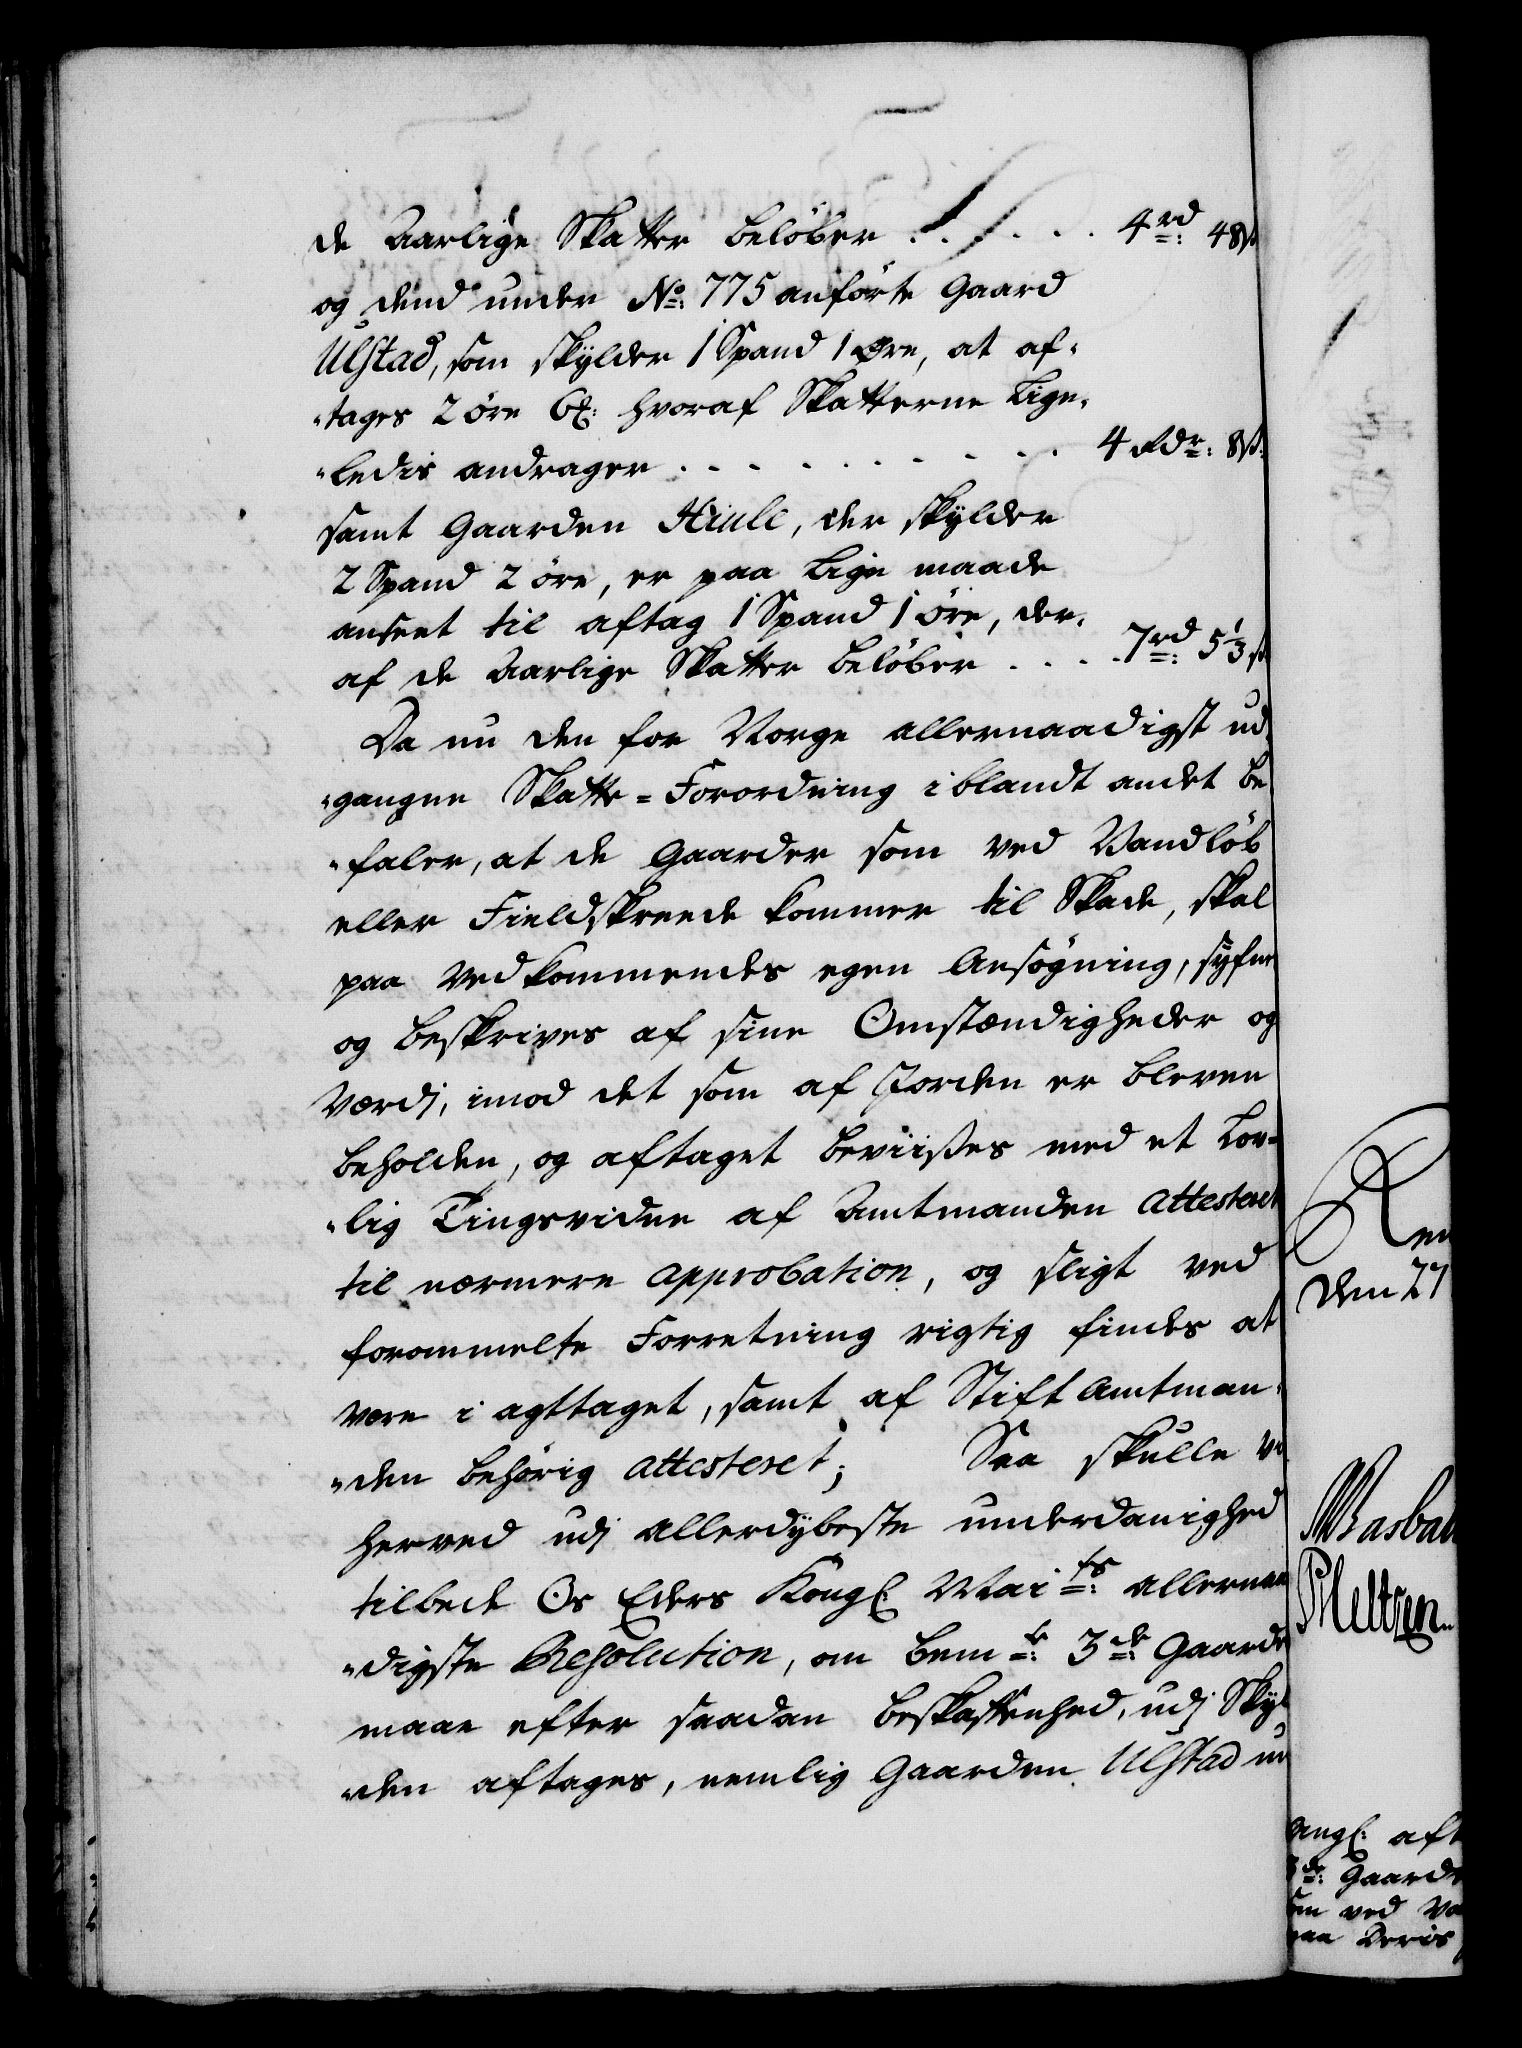 de Aarlige Skatter beløber . . . . . . 4rd: 48s
og dend under No: 775 anførte Gaard
Ulstad, som skylder 1 Spand 1 Øre, at af-
-tages 2 øre 6 : hvoraf Skatterne Lige-
-ledis andrager . . . . . . . . . . . 4 Rdr: 8s:
samt Gaarden Hiule, der skylder
2 Spand 2 øre, er paa Lige maade
anseet til aftag 1 Spand 1 øre, der-
af de Aarlige Skatter beløber . . . . 7rd: 5⅓s
Da nu den for Norge allernaadigst ud
-gangne Skatte=Forordning iblandt andet be
-faler, at de Gaarder som ved Vandløb
eller Fieldskreede kommer til Skade, skal
paa Vedkommendes egen Ansøgning, syfnes
og beskrives af sine Omstændigheder og
Værdj, imod det som af Jorden er bleven
beholden, og aftaget beviises med et Lov-
-lig Tingsvidne af Amtmanden attesteret
til nærmere approbation, og sligt ved
forommelte Forretning rigtig findes at
være i agttaget, samt af Stift Amtman-
-den behørig attesteret; Saa skulle vi
herved udj allerdybeste underdanighed
tilbede Os Eders Kongl: Mai ts: allernaa
-digste Resolution, om bem te: 3 de: Gaarde
maae efter saadan beskaffenhed, udj Skyl
-den aftages, nemlig Gaarden Ulstad un
Ren
den 27
Rasba
PHeltzen
Kongl: aft
3de: Gaarde
som ved Va
paa Deris